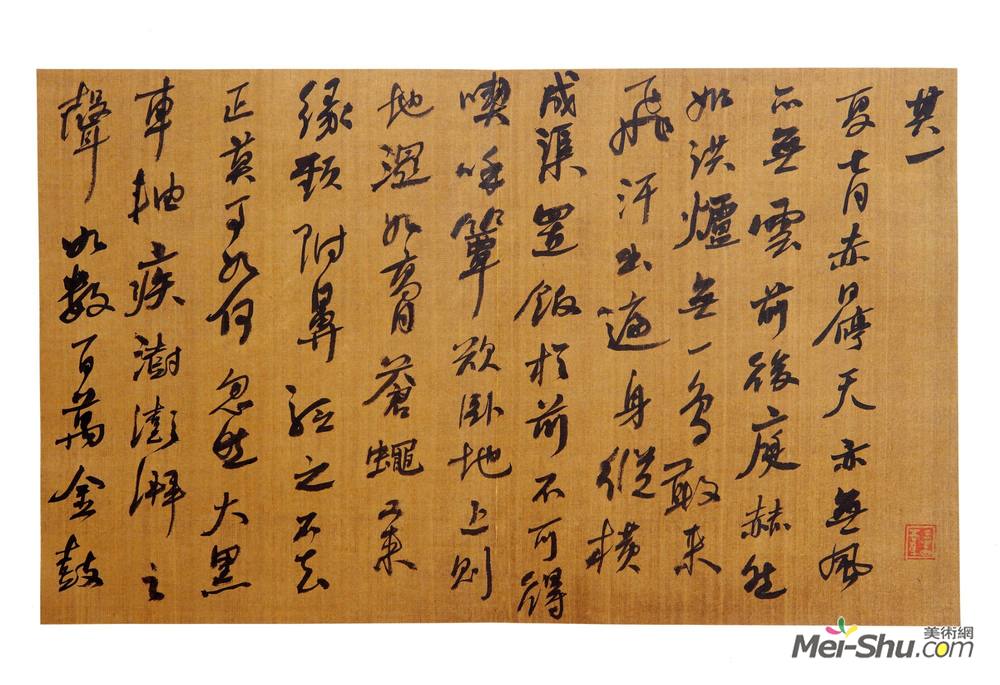 其一
夏七月赤日停天亦無風
亦無雲前後庭赫然
如洪爐無一鳥敢來
飛汗出遍身縱橫
成渠置飯於前不可得
喫呼簟欲卧地上則
地濕如膏蒼蠅又來
緣頸附鼻驅之不去
正莫可如何忽然大黑
車軸疾澍澎湃之
聲如數百萬金鼓
美術網
Mei-Shu.com